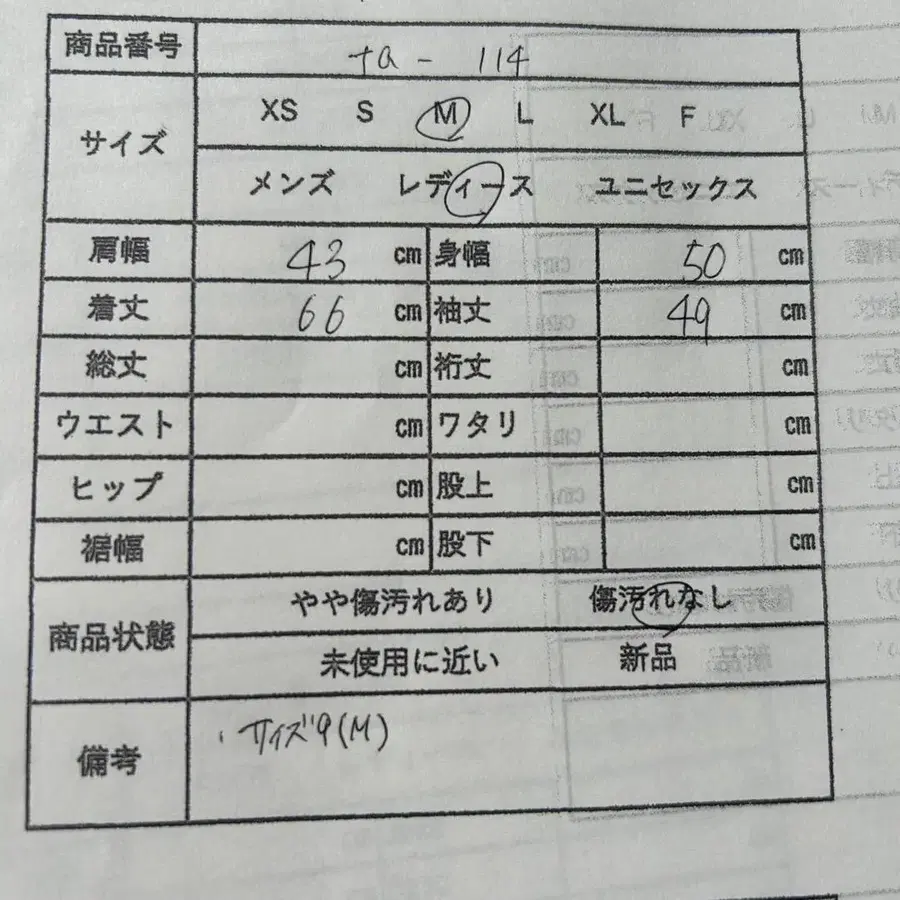 商品番号 ta - 114
サイズ XS S M L XL F
メンズ レディース ユニセックス
肩幅 43 cm 身幅 50 cm
着丈 66 cm 袖丈 49 cm
総丈 cm 裄丈 cm
ウエスト cm ワタリ cm
ヒップ cm 股上 cm
裾幅 cm 股下 cm
商品状態 やや傷汚れあり 傷汚れなし
未使用に近い 新品
備考 ・サイズ9(M)